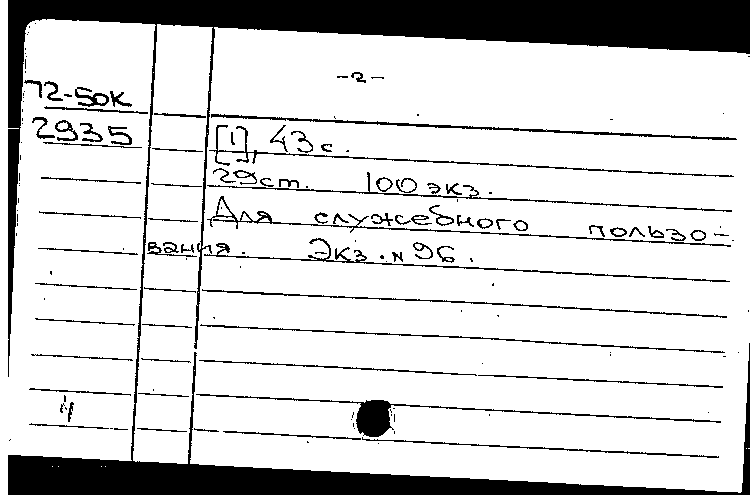 -2-
72-50К
2935
[1], 43 с.
29ст. 100 экз.
Для служебного пользо-
вания. Экз. № 96.